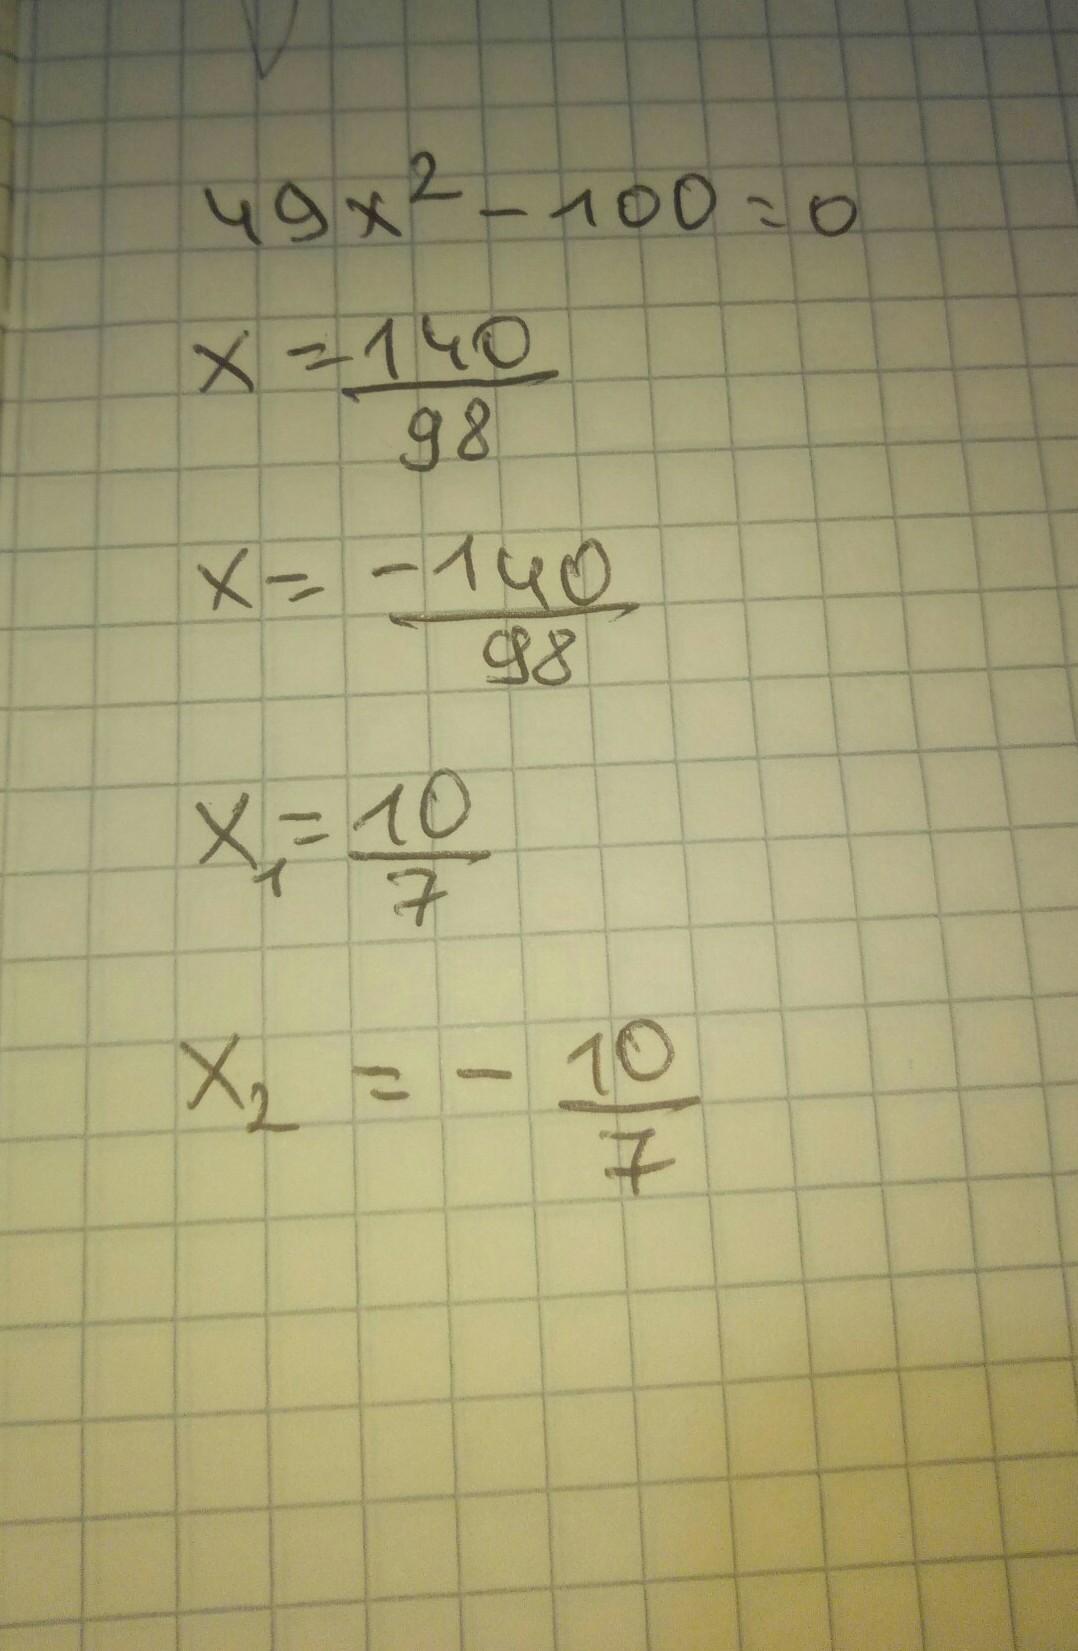 49x² - 100 = 0
x = 140/98
x = -140/98
x₁ = 10/7
x₂ = - 10/7